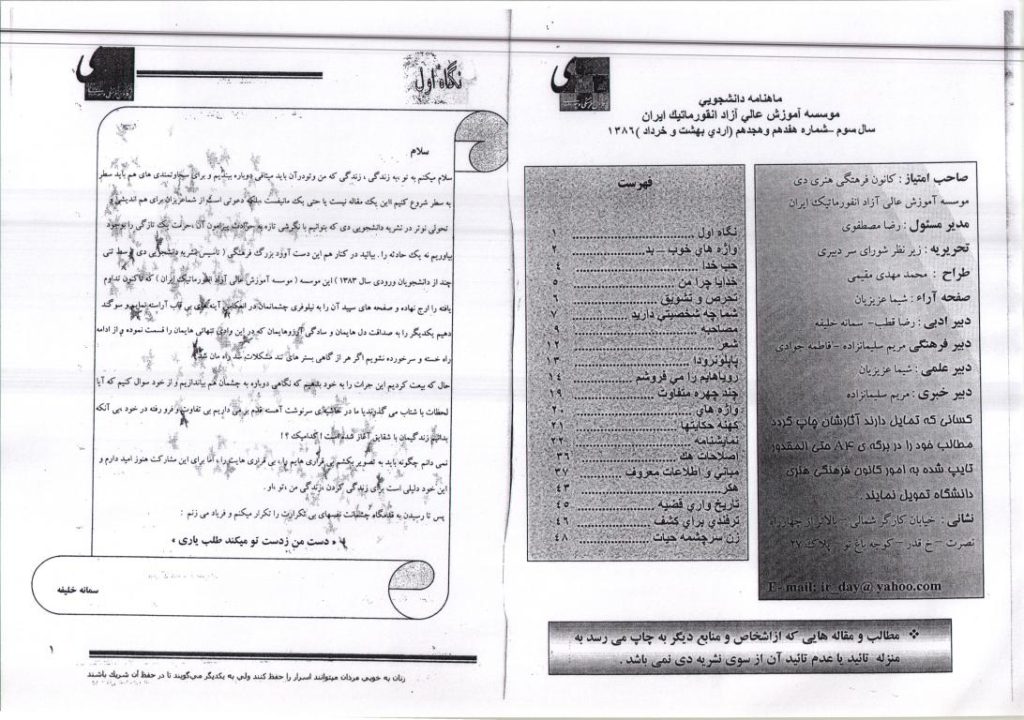 ماهنامه دانشجويي
موسسه آموزش عالي آزاد انفورماتيک ايران
سال سوم –شماره هفدهم وهجدهم (اردي بهشت و خرداد )۱۳۸۶
صاحب امتیاز : کانون فرهنگی هنری دی
موسسه آموزش عالی آزاد انفورماتیک ایران
مدیر مسئول : رضا مصطفوی
تحریریه : زیر نظر شورای سر دبیری
طراح : محمد مهدی مقیمی
صفحه آراء : شیما عزیزیان
دبیر ادبی : رضا قطب – سمانه خلیفه
دبیر فرهنگی مریم سلیمانزاده – فاطمه جوادی
دبیر علمی : شیما عزیزیان
دبیر خبری : مریم سلیمانزاده
کسانی که تمایل دارند آثارشان چاپ گردد
مطالب خود را در برگه ی A۴ حتی المقدور
تایپ شده به امور کانون فرهنگی هنری
دانشگاه تحویل نمایند .
نشانی : خیابان کارگر شمالی – بالاتر از چهارراه
نصرت – خ قدر – کوچه باغ نو – پلاک ۲۷
E- mail: ir_day@yahoo.com
فهرست
نگاه اول ۱
واژه هاي خوب – بد ۲
حب خدا ۴
خدايا چرا من ۵
تحرص و تشويق ۶
شما چه شخصيتي داريد ۷
مصاحبه ۹
شعر ۱۲
پابلونرودا ۱۳
روياهايم را مي فروشم ۱۴
چند چهره متفاوت ۱۹
واژه هاي ۲۰
کهنه حکايتها ۲۱
نمايشنامه ۲۲
اصلاحات هک ۳۶
مباني و اطلاعات معروف ۳۷
هکر ۴۳
تاريخ واري قضيه ۴۵
ترفندي براي کشف ۴۶
زن سرچشمه حيات ۴۸
❖ مطالب و مقاله هایی که ازاشخاص و منابع دیگر به چاپ می رسد به
منزله تائید یا عدم تائید آن از سوی نشریه دی نمی باشد .
نگاه اول
سلام
سلام میکنم به تو ،به زندگی ، زندگی که من وتودرآن باید میثاقی دوباره ببندیم و برای سخاوتمندی های هم باید سطر
به سطر شروع کنیم «این یک مقاله نیست یا حتی یک مانیفست ،بلکه دعوتی است از شماعزیزان برای هم اندیشی و
تحولی نوتر در نشریه دانشجویی دی که بتوانیم با نگرشی تازه به حوادث پیرامون آن ،حرفت یک تازگی را بوجود
بیاوریم نه یک حادثه را . بیائید در کنار هم این دست آورد بزرگ فرهنگی ( تاسیس نشریه دانشجویی دی توسط تنی
چند از دانشجویان ورودی سال ۱۳۸۳ ) این موسسه ( موسسه آموزش عالی آزاد انفورماتیک ایران ) که تاکنون تداوم
یافته را ارج نهاده و صفحه های سپید آن را به نیلوفری چشمانمان در انعکاس آینه های بی قاب آراسته نمایم و سوگند
دهیم یکدیگر را به صداقت دل هایمان و سادگی آرزوهایمان که در این وادی تنهائی هایمان را قسمت نموده و از ادامه
راه خسته و سرخورده نشویم اگر هر از گاهی بستر های تند مشکلات سد راه مان شد
حال که بیعت کردیم این جرات را به خود بدهیم که نگاهی دوباره به چشمان هم بیاندازیم و از خود سوال کنیم که آیا
لحظات با شتاب می گذرند یا ما در حاشیه‌ی سرنوشت آهسته قدم بر می داریم بی تفاوت و فرو رفته در خود ،بی آنکه
بدانیم زندگیمان با شقایق آغاز شده است ! کدامیک ؟ !
نمی دانم چگونه باید به تصویر بکشم بی قراری هایم را، بی قراری هایت را، اما برای این مشارکت هنوز امید دارم و
این خود دلیلی است برای زندگی کردن ،زندگی من ،تو ،او .
پس تا رسیدن به قدمگاه چشمانت نفسهای بی تکرارت را تکرار میکنم و فریاد می زنم :
« دست من زدست تو میکند طلب یاری »
سمانه خلیفه
۱
زنان به خوبی مردان میتوانند اسرار را حفظ کنند ولی به یکدیگر می‌گویند تا در حفظ آن شریک باشند